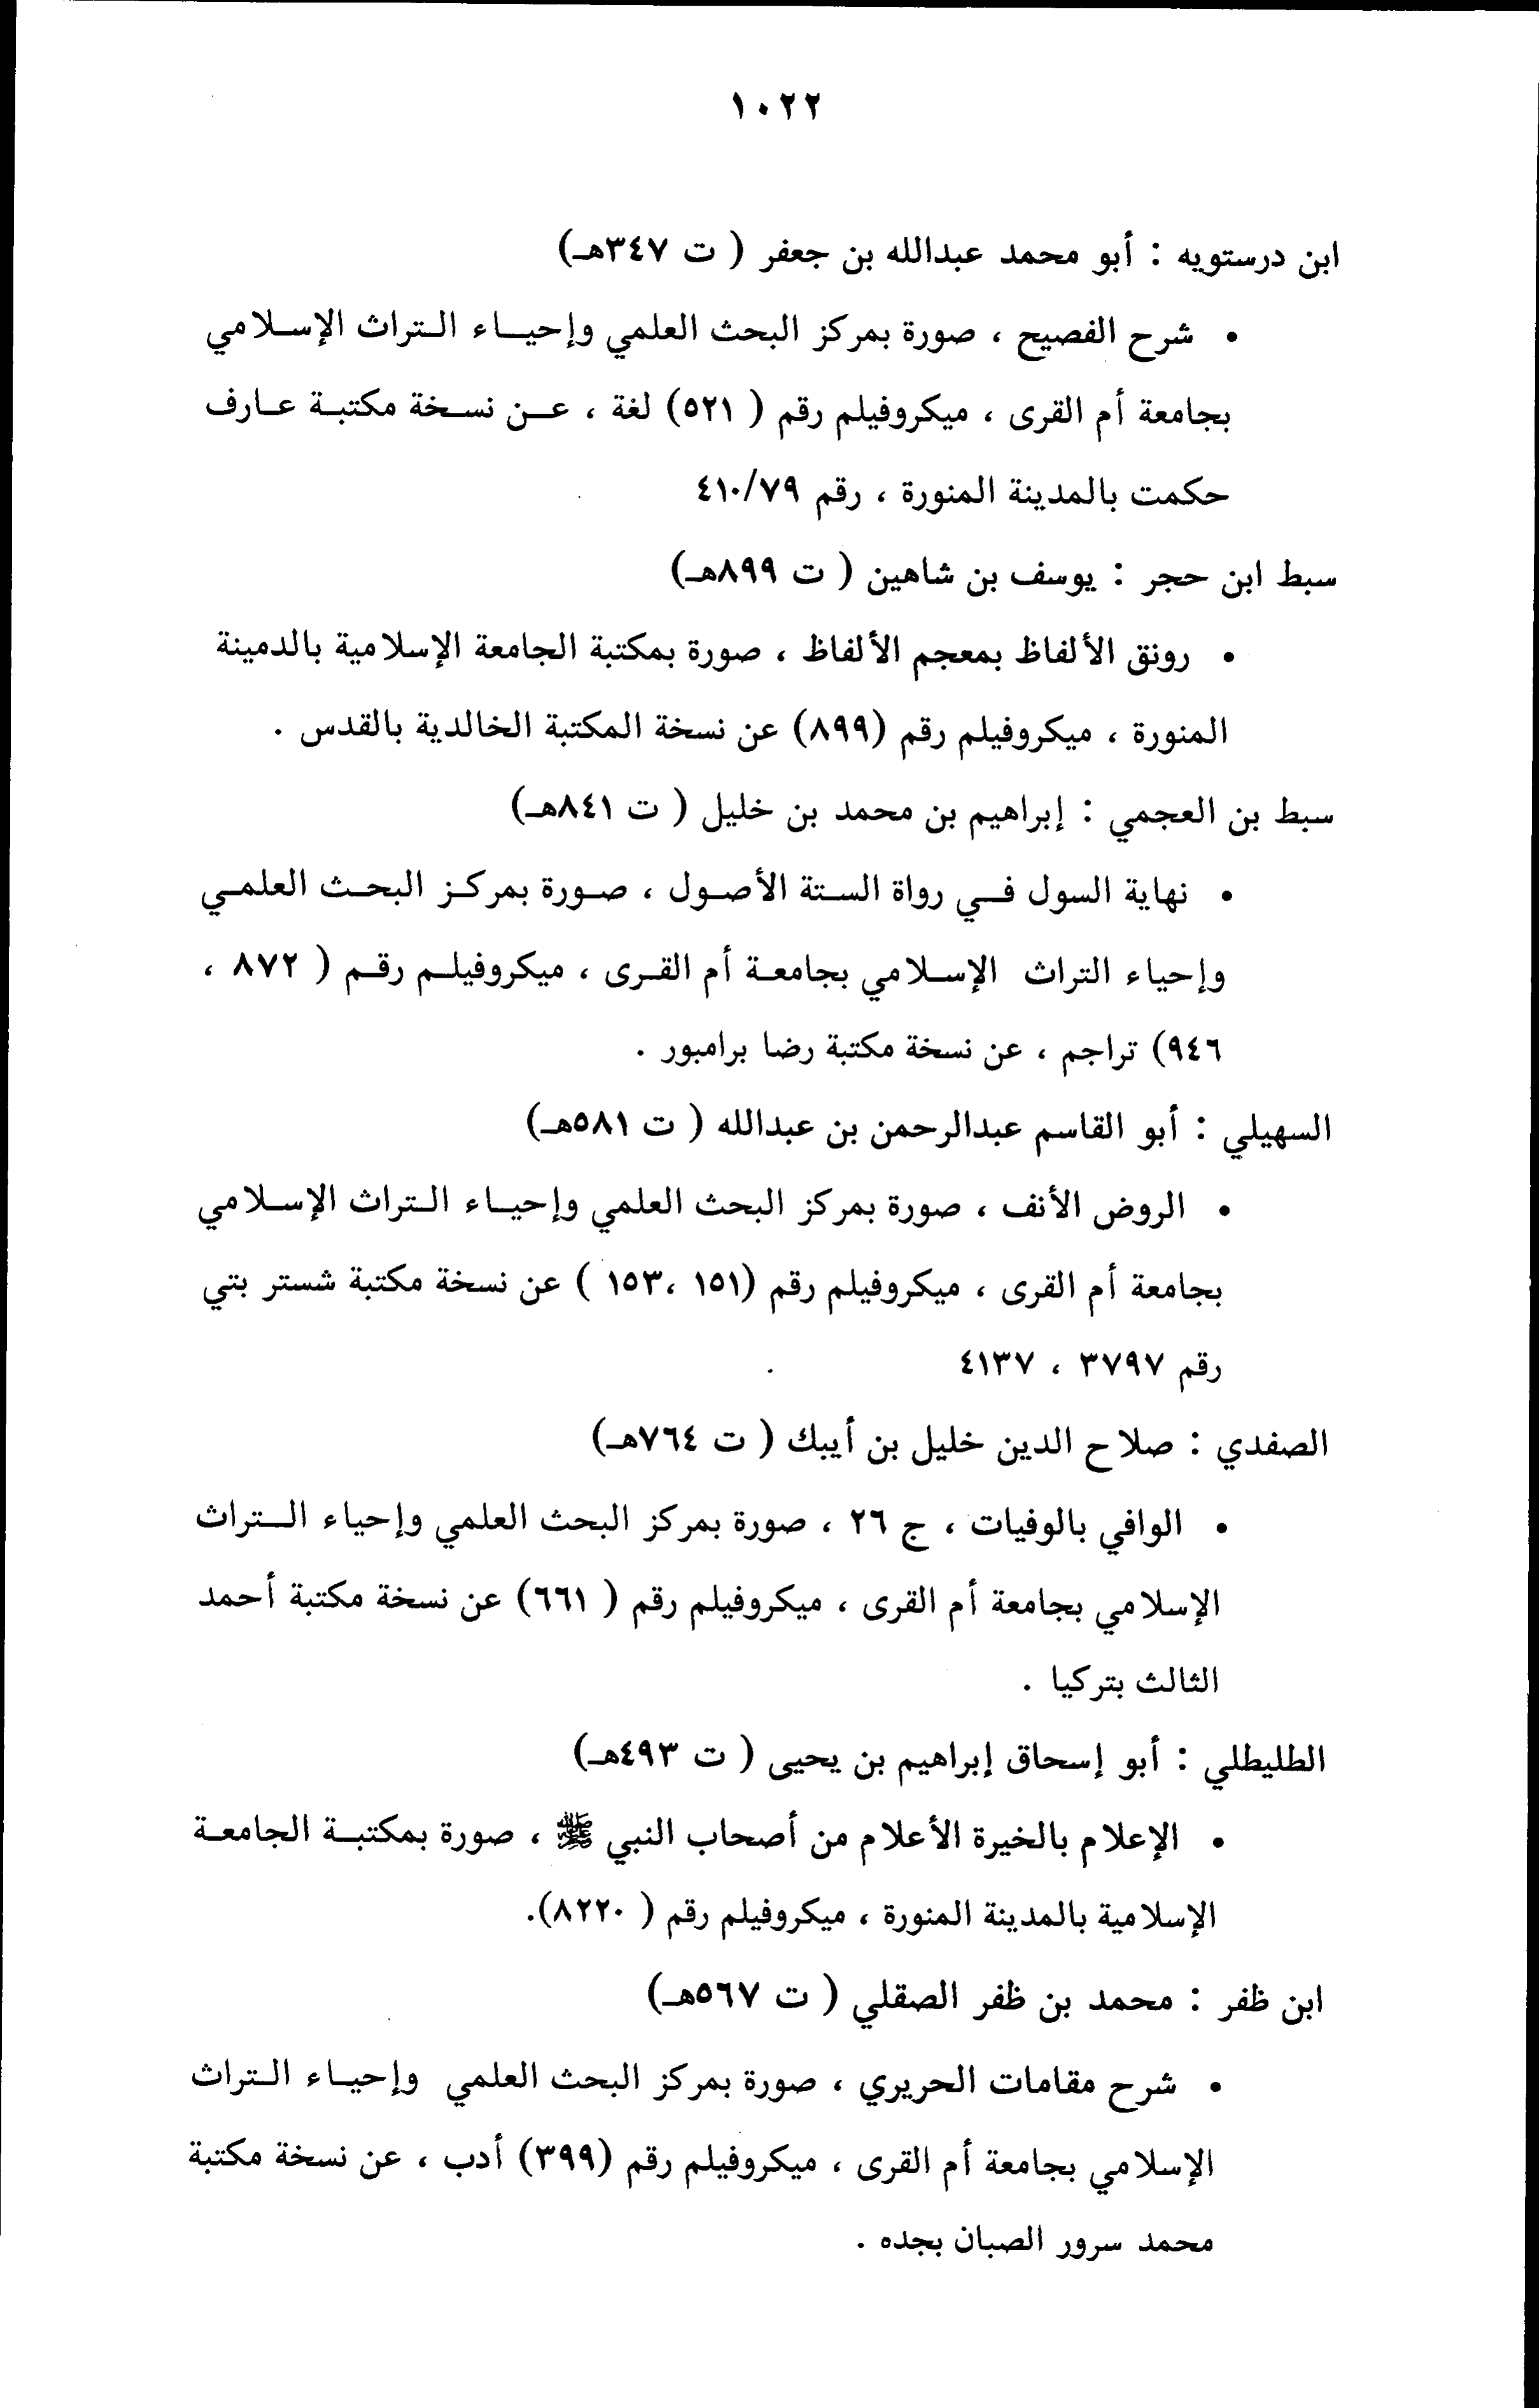 ١٠٢٢
ابن درستويه : أبو محمد عبدالله بن جعفر ( ت ٣٤٧هـ)
• شرح الفصيح ، صورة بمركز البحث العلمي وإحياء التراث الإسلامي
بجامعة أم القرى ، ميكروفيلم رقم ( ٥٢١) لغة ، عن نسخة مكتبة عارف
حكمت بالمدينة المنورة ، رقم ٤١٠/٧٩
سبط ابن حجر : يوسف بن شاهين ( ت ٨٩٩هـ)
• رونق الألفاظ بمعجم الألفاظ ، صورة بمكتبة الجامعة الإسلامية بالدمينة
المنورة ، ميكروفيلم رقم (٨٩٩) عن نسخة المكتبة الخالدية بالقدس .
سبط بن العجمي : إبراهيم بن محمد بن خليل ( ت ٨٤١هـ)
• نهاية السول في رواة الستة الأصول ، صورة بمركز البحث العلمي
وإحياء التراث الإسلامي بجامعة أم القرى ، ميكروفيلم رقم ( ٨٧٢ ،
٩٤٦) تراجم ، عن نسخة مكتبة رضا برامبور .
السهيلي : أبو القاسم عبدالرحمن بن عبدالله ( ت ٥٨١هـ)
• الروض الأنف ، صورة بمركز البحث العلمي وإحياء التراث الإسلامي
بجامعة أم القرى ، ميكروفيلم رقم (١٥١ ،١٥٣ ) عن نسخة مكتبة شستر بتي
رقم ٣٧٩٧ ، ٤١٣٧
الصفدي : صلاح الدين خليل بن أيبك ( ت ٧٦٤هـ)
• الوافي بالوفيات ، ج ٢٦ ، صورة بمركز البحث العلمي وإحياء التراث
الإسلامي بجامعة أم القرى ، ميكروفيلم رقم ( ٦٦١) عن نسخة مكتبة أحمد
الثالث بتركيا .
الطليطلي : أبو إسحاق إبراهيم بن يحيى ( ت ٤٩٣هـ)
• الإعلام بالخيرة الأعلام من أصحاب النبي ﷺ ، صورة بمكتبة الجامعة
الإسلامية بالمدينة المنورة ، ميكروفيلم رقم ( ٨٢٢٠).
ابن ظفر : محمد بن ظفر الصقلي ( ت ٥٦٧هـ)
• شرح مقامات الحريري ، صورة بمركز البحث العلمي وإحياء التراث
الإسلامي بجامعة أم القرى ، ميكروفيلم رقم (٣٩٩) أدب ، عن نسخة مكتبة
محمد سرور الصبان بجده .